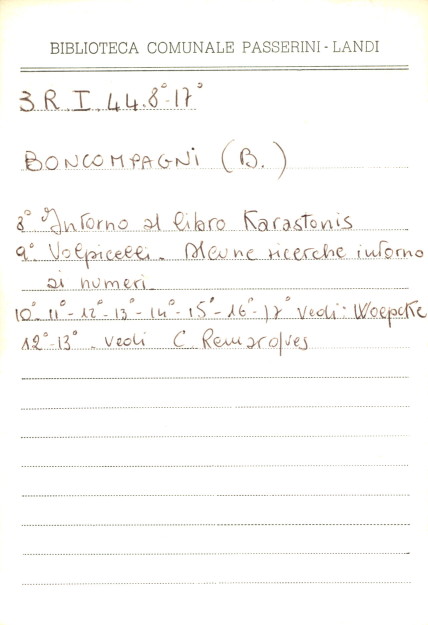 BIBLIOTECA COMUNALE PASSERINI - LANDI
3 R. I. 44. 8°-17°
BONCOMPAGNI (B.)
8° Intorno al libro Karastonis
9° Volpicelli. Alcune ricerche intorno
ai numeri.
10°-11°-12°-13°-14°-15°-16°-17° vedi: Woepcke
12°-13° - vedi C